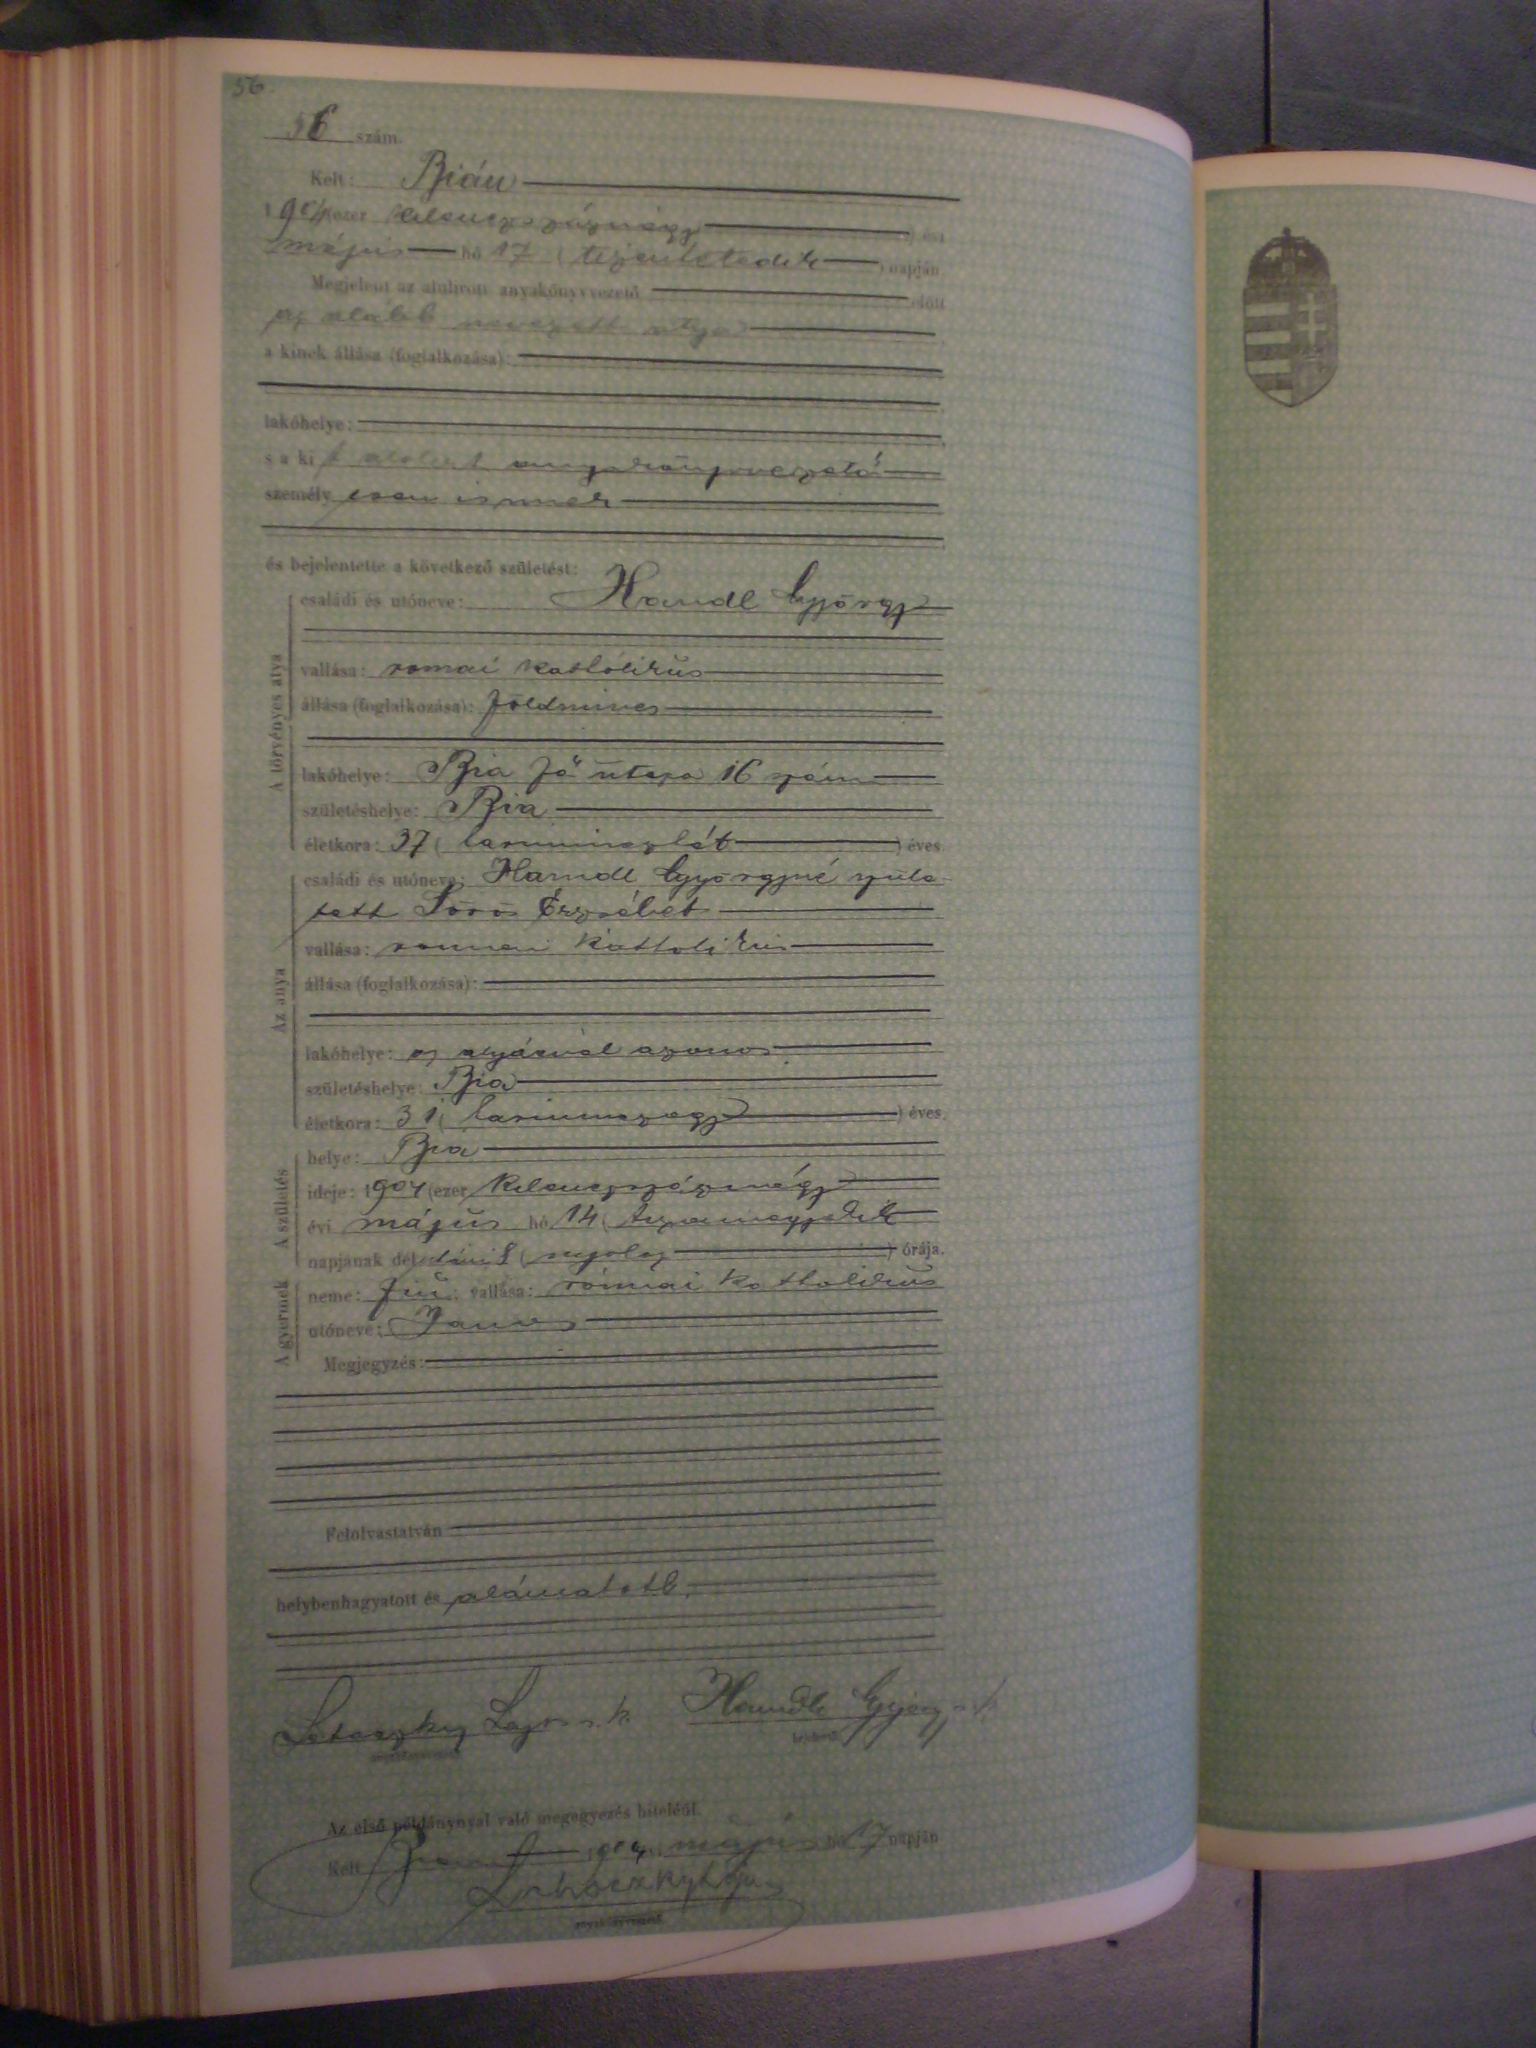 56
56 szám.
Kelt: Bián
1904 (ezer kilenczszáznégy ) évi
május hó 17 ( tizenhetedik ) napján.
Megjelent az alulirott anyakönyvvezető előtt
az alább nevezett atya
a kinek állása (foglalkozása):
lakóhelye:
s a kit alulirt anyakönyvvezető
személyesen ismer
és bejelentette a következő születést:
A törvényes atya
családi és utóneve: Handl György
vallása: romai katholikus
állása (foglalkozása): földmives
lakóhelye: Bia fő utcza 16 szám
születéshelye: Bia
életkora: 37 ( harminczhét ) éves.
Az anya
családi és utóneve: Handl Györgyné szüle-
tett Erzsébet
vallása: romai katholikus
állása (foglalkozása):
lakóhelye: az atyáéval azonos
születéshelye: Bia
életkora: 31 ( harminczegy ) éves.
A születés
helye: Bia
ideje: 1904 (ezer kilenczszáznégy
évi május hó 14 ( tizennegyedik
napjának délelőtti 8 ( nyolcz ) órája.
A gyermek
neme: fiú; vallása: római katholikus
utóneve: János
Megjegyzés:
Felolvastatván
helybenhagyatott és aláiratott.
Lajos s. k. Handl György s. k.
anyakönyvvezető bejelentő
Az első példánynyal való megegyezés hiteléül.
Kelt 1904 május hó 17 napján
anyakönyvvezető